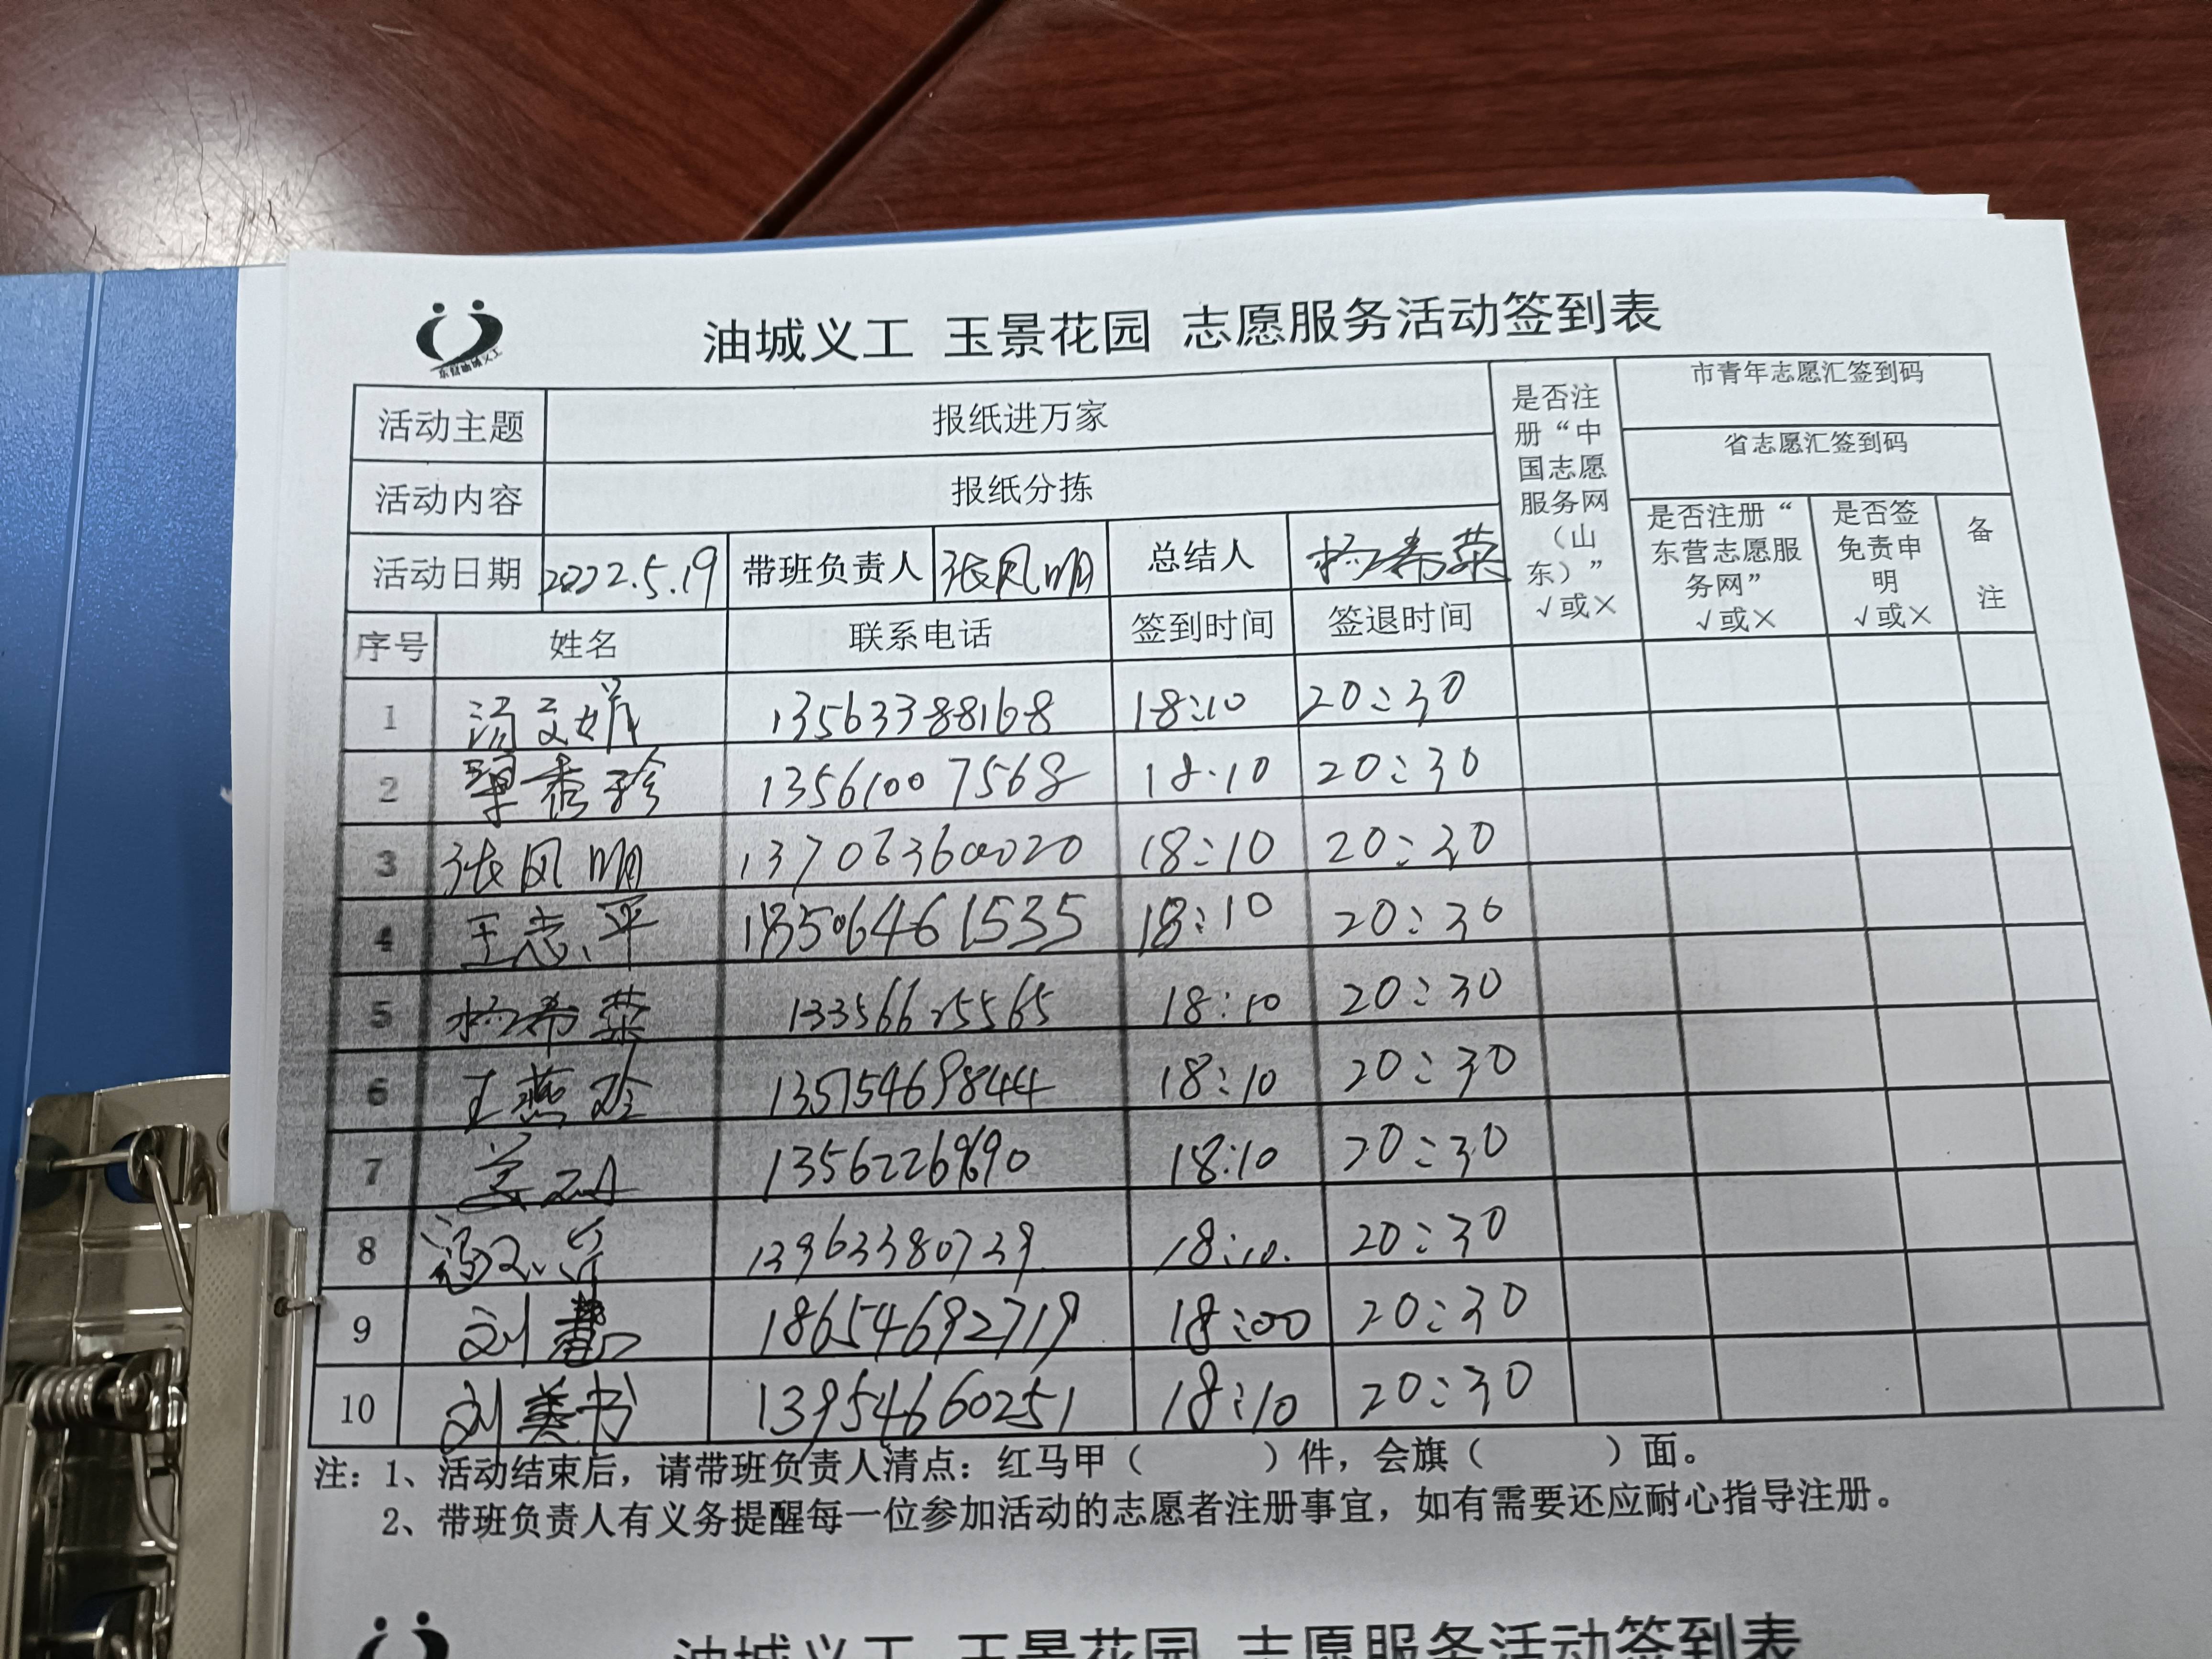 东营油城义工
油城义工 玉景花园 志愿服务活动签到表
活动主题 报纸进万家 是否注册“中国志愿服务网（山东）” √或× 市青年志愿汇签到码
省志愿汇签到码
活动内容 报纸分拣 是否注册“东营志愿服务网” √或× 是否签免责申明 √或× 备注
活动日期 2022.5.19 带班负责人 张风明 总结人 杨希荣
序号 姓名 联系电话 签到时间 签退时间
1 汤文娟 13563388168 18:10 20:30
2 覃秀珍 13561007568 18:10 20:30
3 张风明 13706360020 18:10 20:30
4 王志平 13506461535 18:10 20:30
5 杨希荣 13356625565 18:10 20:30
6 王燕玲 13515469844 18:10 20:30
7 18:10 20:30
8 13963380739 18:10. 20:30
9 刘慧 18654692719 18:00 20:30
10 刘美书 13954660251 18:10 20:30
注：1、活动结束后，请带班负责人清点：红马甲（ ）件，会旗（ ）面。
2、带班负责人有义务提醒每一位参加活动的志愿者注册事宜，如有需要还应耐心指导注册。
油城义工 玉景花园 志愿服务活动签到表